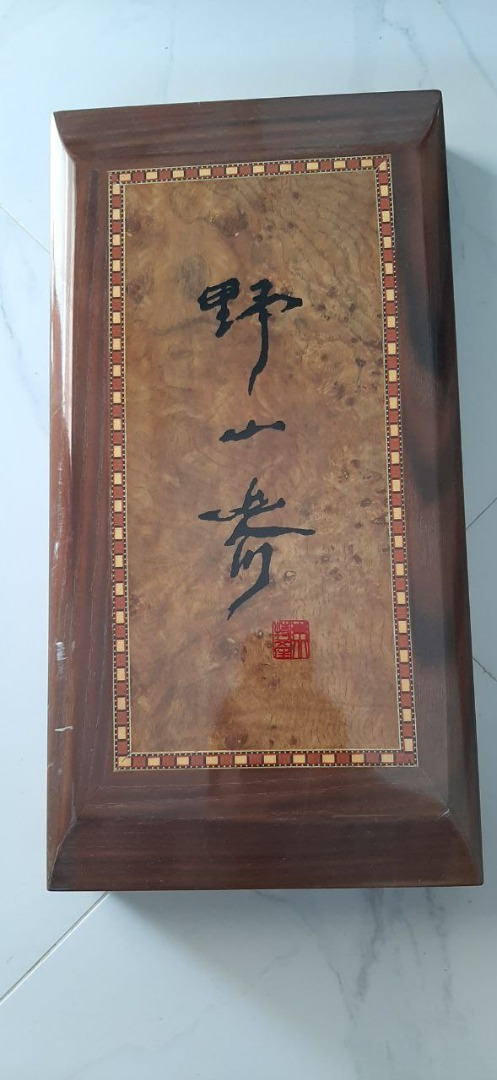 野山参